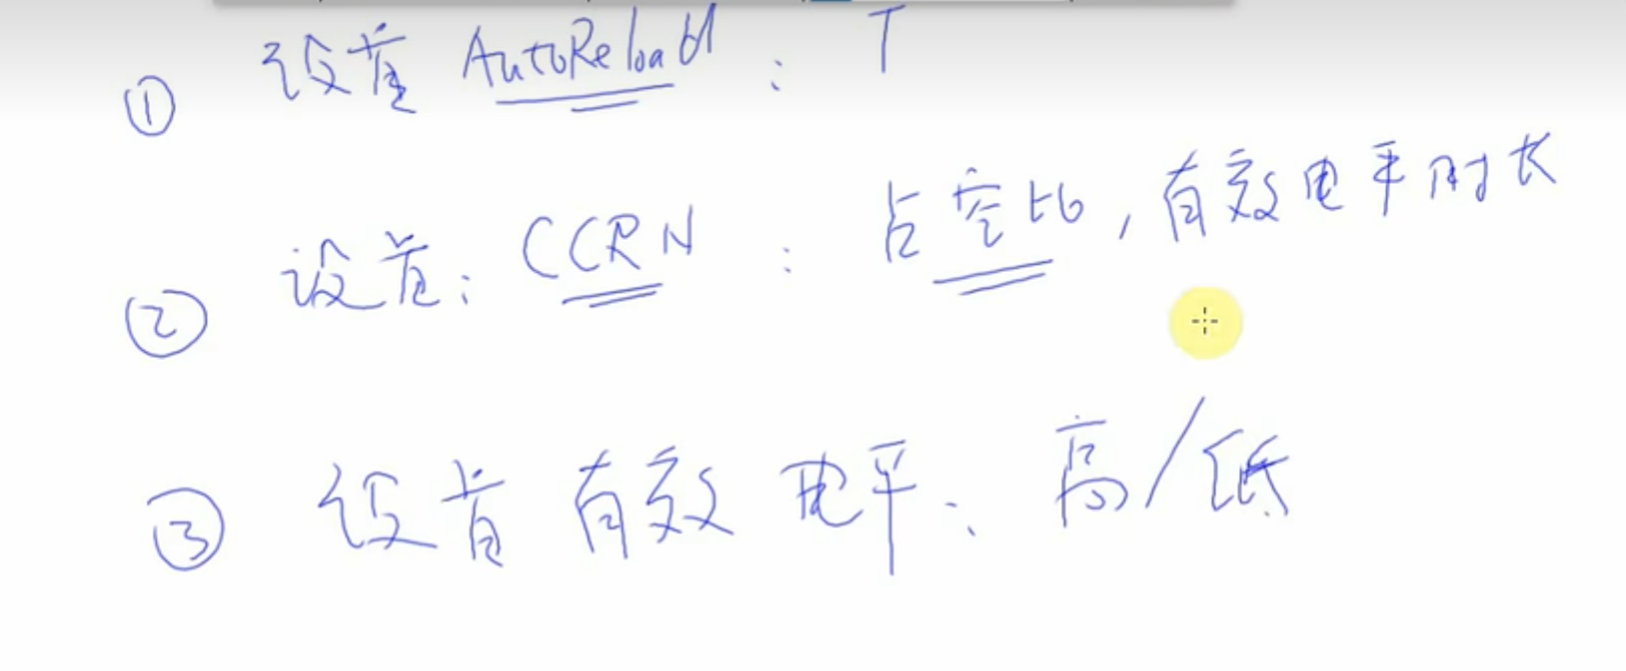 ① 设置 AutoReload : T
② 设置: CCRN : 占空比, 有效电平时长
③ 设置 有效 电平: 高/低